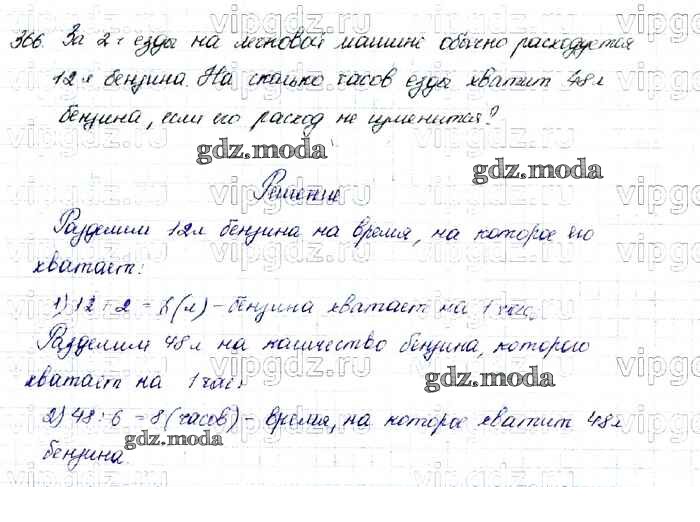 366. За 2 ч езды на легковой машине обычно расходуется
12 л бензина. На сколько часов езды хватит 48 л
бензина, если его расход не изменится?
gdz.moda
gdz.moda
Решение
Разделим 12 л бензина на время, на которое его
хватает:
1) 12 : 2 = 6 (л) – бензина хватает на 1 час.
Разделим 48 л на количество бензина, которого
хватает на 1 час:
gdz.moda
2) 48 : 6 = 8 (часов) – время, на которое хватит 48 л
gdz.moda
бензина.